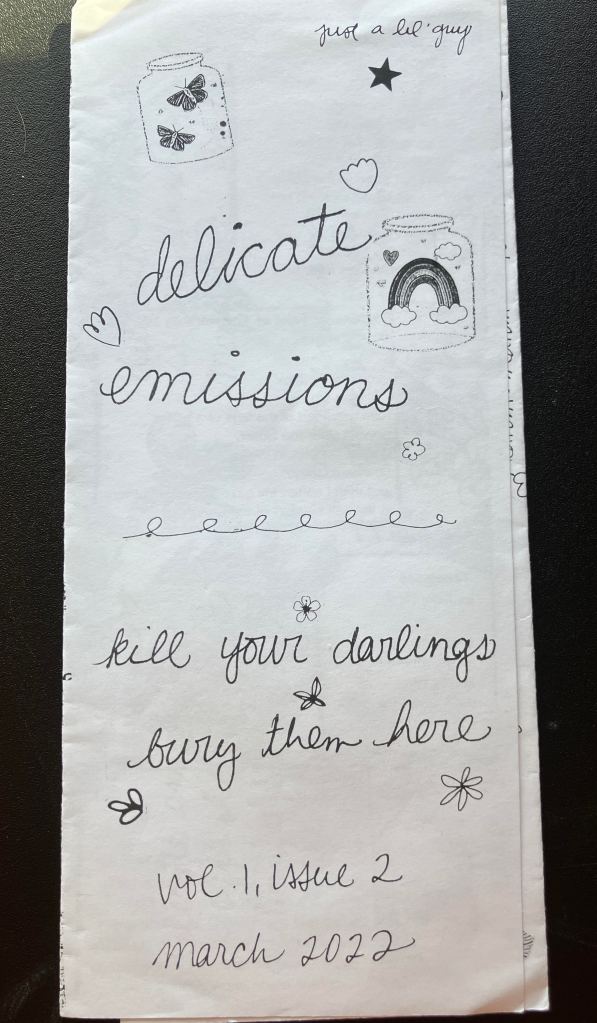 just a lil' guy
delicate
emissions
kill your darlings
bury them here
vol. 1, issue 2
march 2022